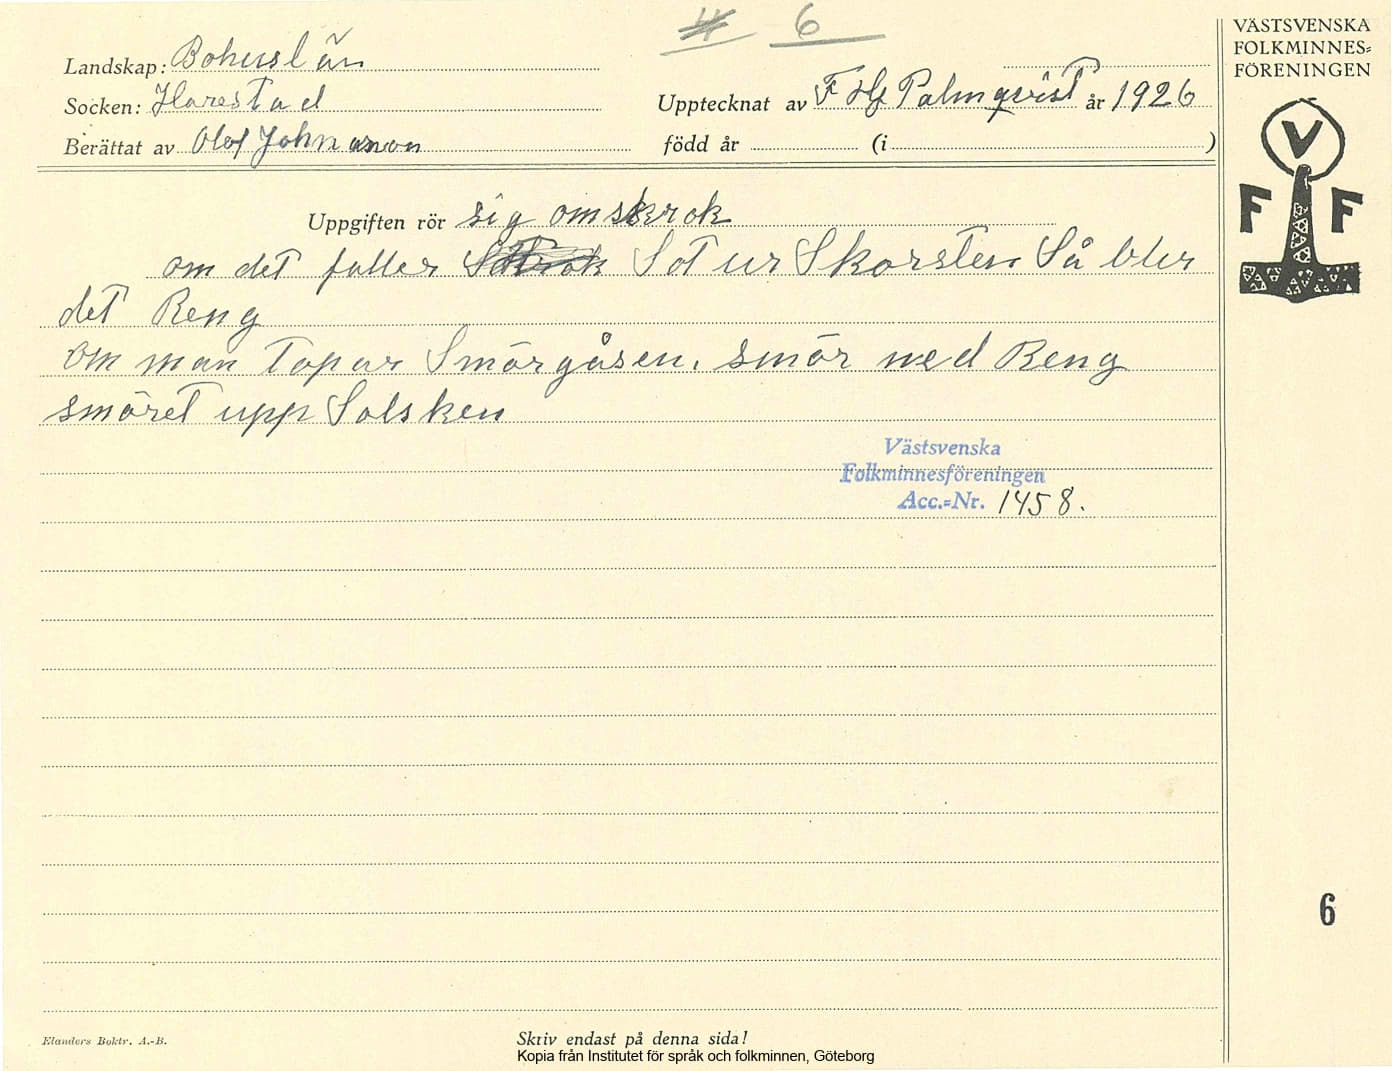 # 6
VÄSTSVENSKA
FOLKMINNES=
FÖRENINGEN
V
F F
Landskap: Bohuslän
Socken: Harestad
Upptecknat av F Hj Palmqvist år 1926
Berättat av Olof Johnason
född år (i )
Uppgiften rör sig om skrok
om det faller Sot ur Skorsten Så blir
det Reng
om man Tapar Smörgåsen. smör ned Reng
smöret upp Solsken
Västsvenska
Folkminnesföreningen
Acc.=Nr. 1458.
6
Elanders Boktr. A.-B.
Skriv endast på denna sida!
Kopia från Institutet för språk och folkminnen, Göteborg